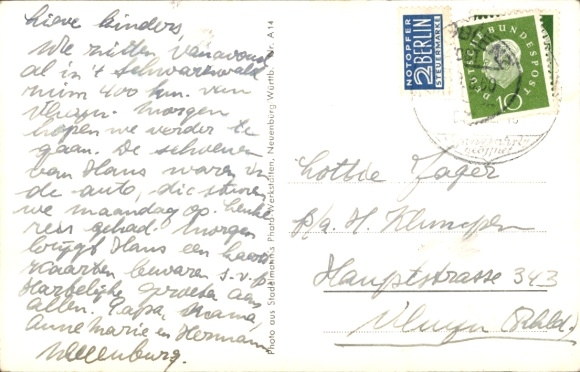 Lieve kinders,
We zitten vanavond
al in 't Schwarzwald
ruim 400 km. van
Vluyn. Morgen
hopen we verder te
gaan. De schoenen
van Hans waren in
de auto, die sturen
we maandag op. Leuke
reis gehad. Morgen
krijgt Hans een kaart
Kaarten bewaren s.v.p.
Hartelijke groeten aan
allen. Papa, Mama,
Annemarie en Hermann
Neuenburg.
Photo aus Stadelmann's Photo-Werkstätten, Neuenbürg Württb. Nr. A 14
NOTOPFER
2 BERLIN
STEUERMARKE
DEUTSCHE BUNDESPOST
10
Lottie Jager
p/a H. Klumpen
Hauptstrasse 343
Vluyn (Rhld.)